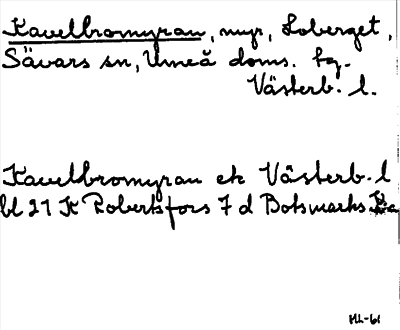 Kavelbromyran, myr, Loberget,
Sävars sn, Umeå doms. tg.
Västerb. l.
Kavelbromyran ek Västerb. l
bl 21 K Robertsfors 7 d Botsmarks
HL-61